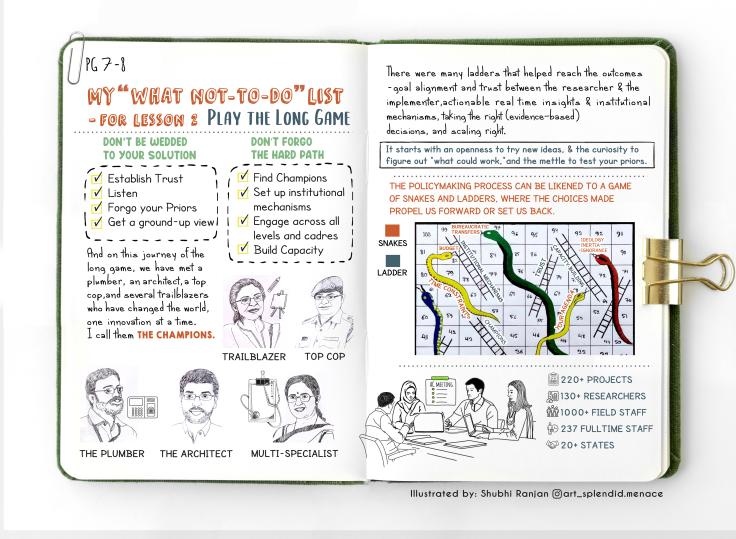 PG 7-8
MY "WHAT NOT-TO-DO" LIST
- FOR LESSON 2 PLAY THE LONG GAME
DON'T BE WEDDED
TO YOUR SOLUTION
Establish Trust
Listen
Forgo your Priors
Get a ground-up view
DON'T FORGO
THE HARD PATH
Find Champions
Set up institutional
mechanisms
Engage across all
levels and cadres
Build Capacity
And on this journey of the
long game, we have met a
plumber, an architect, a top
cop, and several trailblazers
who have changed the world,
one innovation at a time.
I call them THE CHAMPIONS.
TRAILBLAZER
TOP COP
THE PLUMBER
THE ARCHITECT
MULTI-SPECIALIST
There were many ladders that helped reach the outcomes
-goal alignment and trust between the researcher & the
implementer, actionable real time insights & institutional
mechanisms, taking the right (evidence-based)
decisions, and scaling right.
It starts with an openness to try new ideas, & the curiosity to
figure out "what could work," and the mettle to test your priors.
THE POLICYMAKING PROCESS CAN BE LIKENED TO A GAME
OF SNAKES AND LADDERS, WHERE THE CHOICES MADE
PROPEL US FORWARD OR SET US BACK.
SNAKES
LADDER
BUREAUCRATIC
TRANSFERS
BUDGET
INSTITUTIONAL MECHANISM
TIME CONSTRAINTS
CHAMPIONS
TRUST
CAPACITY BUILDING
OUR AGENDA
IDEOLOGY
INERTIA
IGNORANCE
IC MEETING
220+ PROJECTS
130+ RESEARCHERS
1000+ FIELD STAFF
237 FULLTIME STAFF
20+ STATES
Illustrated by: Shubhi Ranjan @art_splendid.menace